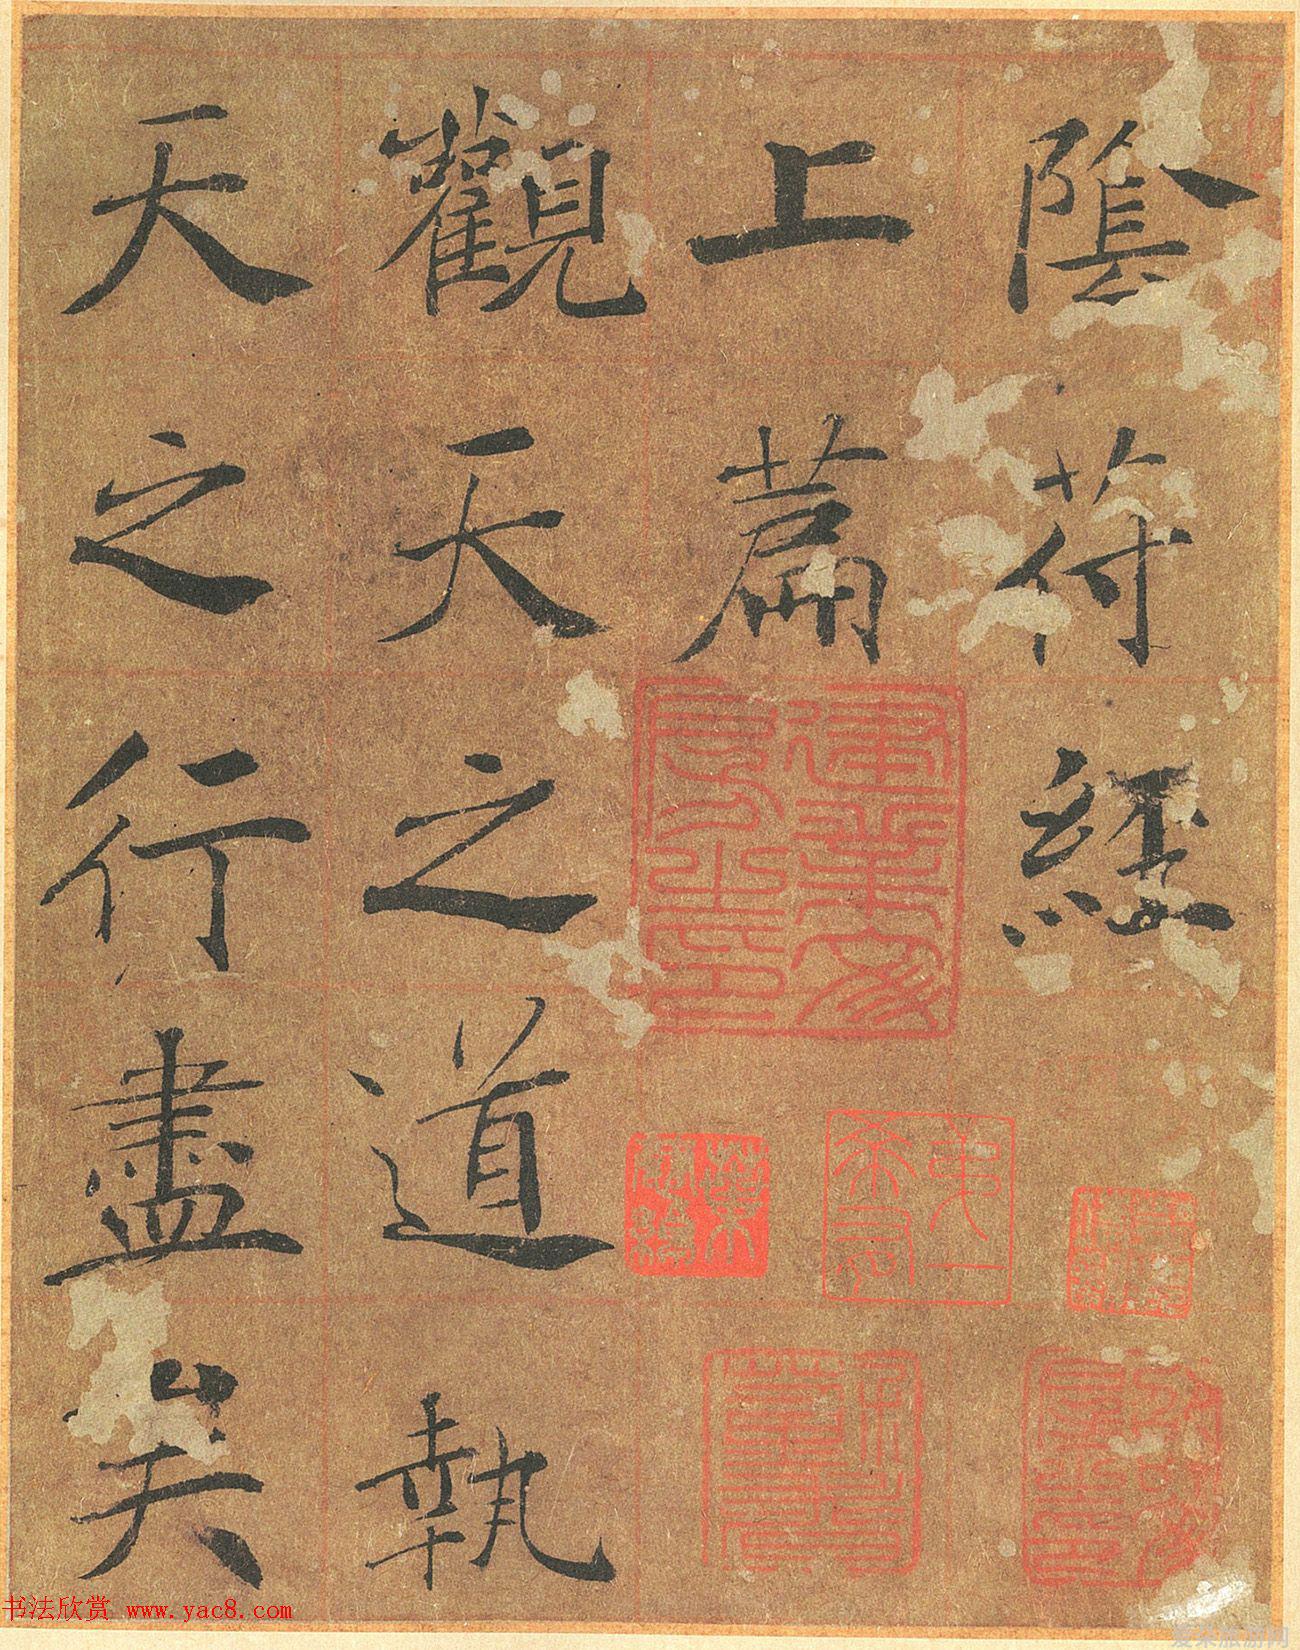 陰符經
上萹
觀天之道執
天之行盡矣
建業文房之印
书法欣赏 www.yac8.com